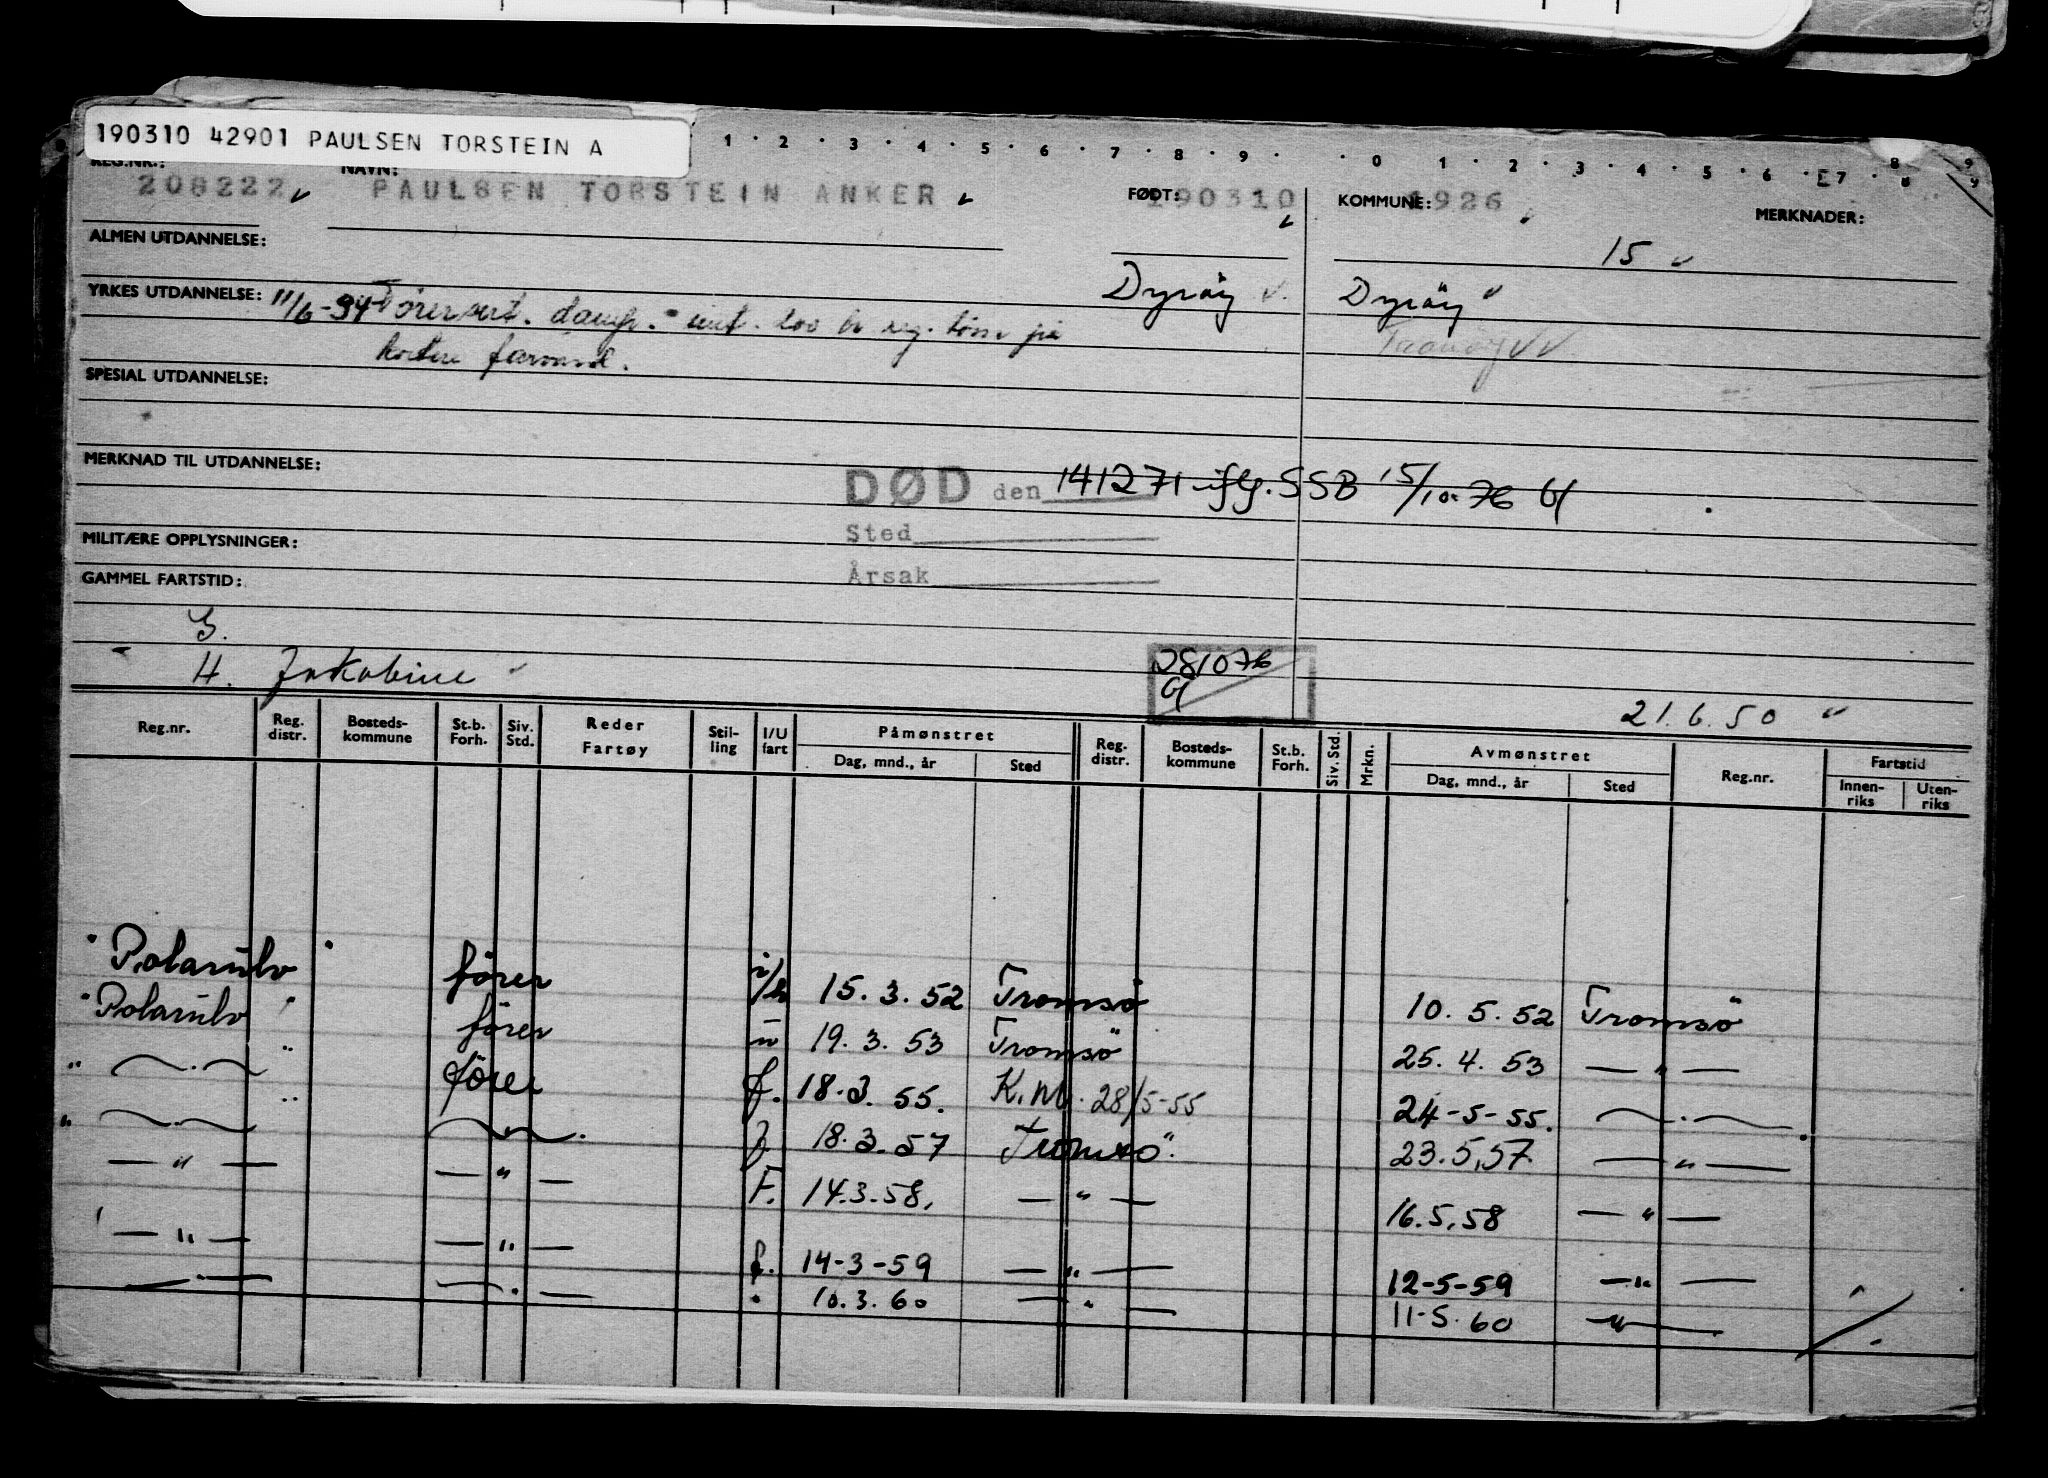 190310 42901 PAULSEN TORSTEIN A
1 · 2 · 3 · 4 · 5 · 6 · 7 · 8 · 9 · · 0 · 1 · 2 · 3 · 4 · 5 · 6 · 7 · 8
REG.NR.: NAVN: FØDT: KOMMUNE: MERKNADER:
208222 PAULSEN TORSTEIN ANKER 190310 1926
ALMEN UTDANNELSE: 15
YRKES UTDANNELSE: 11/6-34 Dyröy Dyröy
Tranöy
SPESIAL UTDANNELSE:
MERKNAD TIL UTDANNELSE:
DØD den 141271 iflg. SSB 15/10-76
Sted
MILITÆRE OPPLYSNINGER:
Årsak
GAMMEL FARTSTID:
G.
H. Jakobine
281076
21.6.50
Reg.nr. Reg. distr. Bosteds-kommune St.b. Forh. Siv. Std. Reder Fartøy Stil-ling I/U fart Påmønstret Dag, mnd., år Sted Reg. distr. Bosteds-kommune St.b. Forh. Siv. Std. Mrkn. Avmønstret Dag, mnd., år Sted Reg.nr. Fartstid Innen-riks Uten-riks
" Polarulv " förer 15.3.52 Tromsö 10.5.52 Tromsö
" Polarulv " förer 19.3.53 Tromsö 25.4.53 — " —
" —.— " förer f. 18.3.55. K.M. 28/5-55 24-5-55. —.—
" —.— —.— f. 18.3.57 Tromsö 23.5.57 — " —
— " — — " — F. 14.3.58. — " — 16.5.58 — " —
— " — — " — f. 14-3-59 — " — 12-5-59 — " —
— . — — . — 10.3.60 — " — 11-5.60 — " —